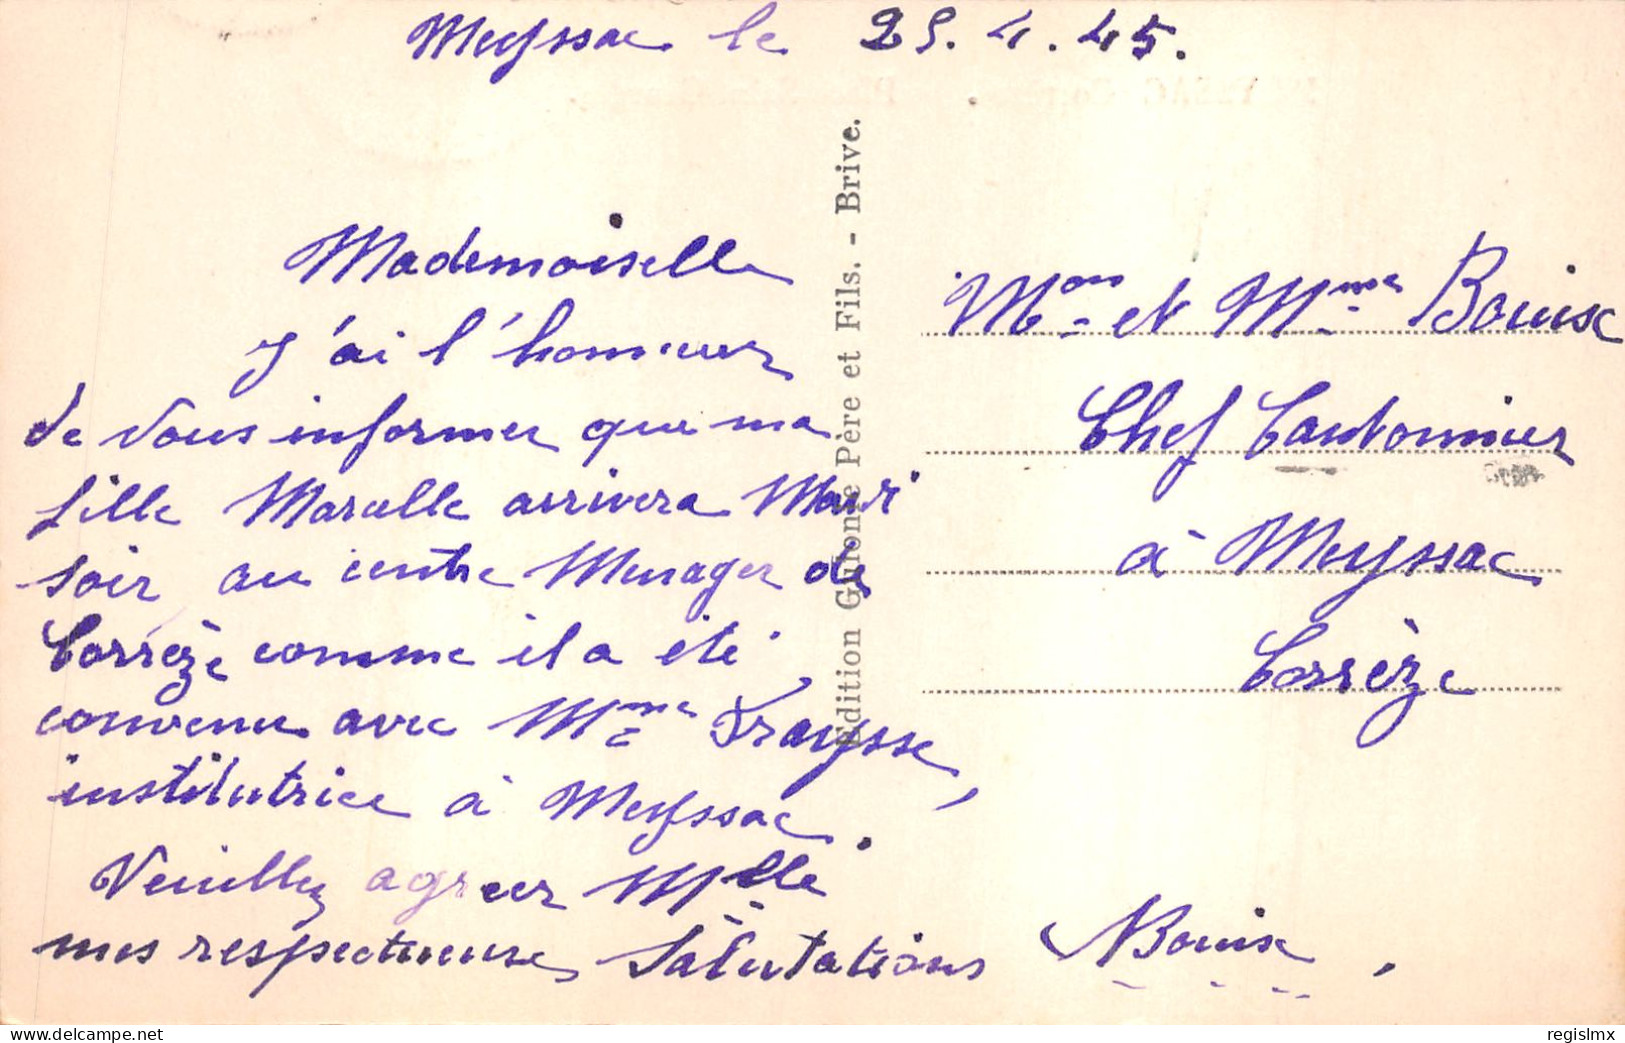 Meyssac le 25.4.45.
Mademoiselle
J'ai l'honneur
de vous informer que ma
fille Marcelle arrivera Mardi
soir au centre Menager de
Corrèze comme il a été
convenu avec Mme Fraysse,
institutrice à Meyssac.
Veuillez agréer Mlle
mes respectueuses Salutations
Bouix
Edition Guionie Père et Fils. - Brive.
Mon et Mme Bouix
Chef Cantonnier
à Meyssac
Corrèze
regislmx